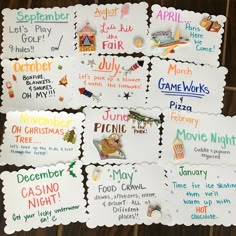 September
Let's Play
Golf!
9 holes!!
August
Let's hit
the
FAIR
APRIL
Here
Comes...
October
Bonfire
Blankets,
& S'mores
OH MY!!!
July
Let's pick up a
sweet
&
watch
the fireworks
March
GAMEWORKS
&
Pizza
November
OH CHRISTMAS
TREE....
let's go
June
PICNIC
February
Movie Night
popcorn
December
CASINO
NIGHT!
Get your lucky underwear
on!
May
FOOD CRAWL
Drinks, appetizers,
and dessert all
different
places!!
January
Time for ice skating
then we'll
warm up with
HOT
chocolate